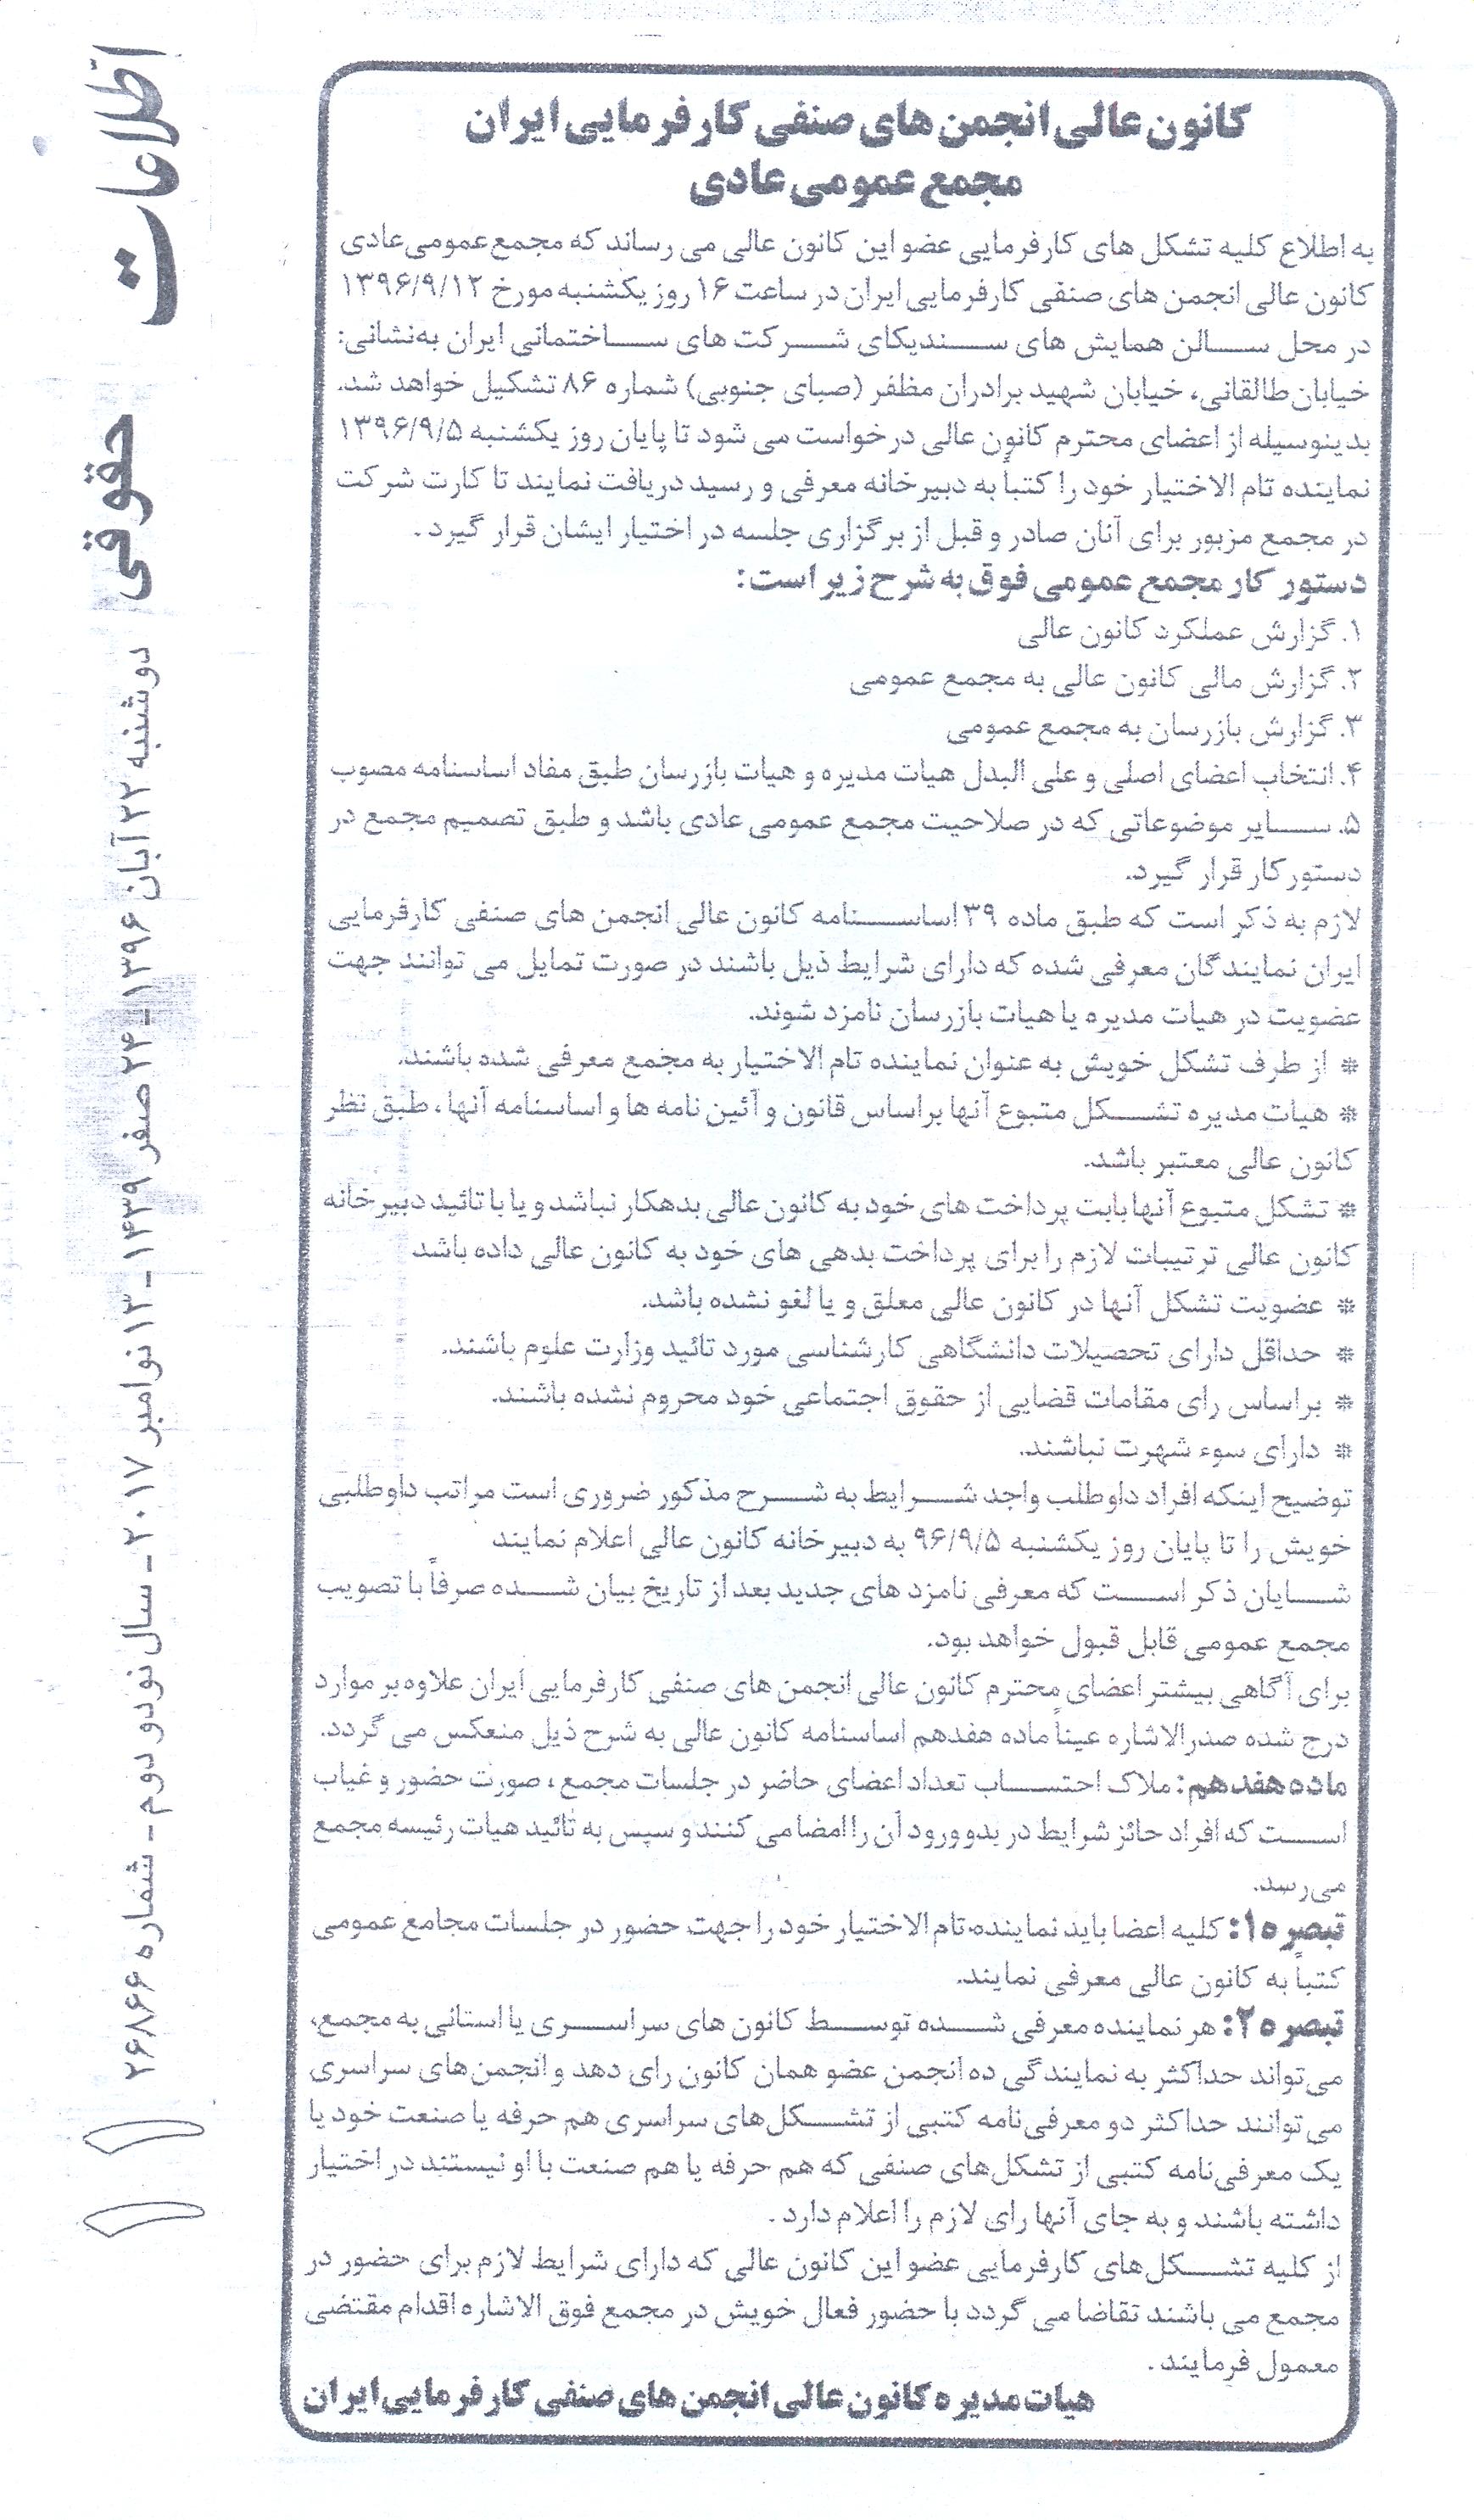 کانون عالی انجمن های صنفی کارفرمایی ایران
مجمع عمومی عادی
به اطلاع کلیه تشکل های کارفرمایی عضو این کانون عالی می رساند که مجمع عمومی عادی
کانون عالی انجمن های صنفی کارفرمایی ایران در ساعت ۱۶ روز یکشنبه مورخ ۱۳۹۶/۹/۱۲
در محل سالن همایش های سندیکای شرکت های ساختمانی ایران به‌نشانی:
خیابان طالقانی، خیابان شهید برادران مظفر (صبای جنوبی) شماره ۸۶ تشکیل خواهد شد.
بدینوسیله از اعضای محترم کانون عالی درخواست می شود تا پایان روز یکشنبه ۱۳۹۶/۹/۵
نماینده تام الاختیار خود را کتباً به دبیرخانه معرفی و رسید دریافت نمایند تا کارت شرکت
در مجمع مزبور برای آنان صادر و قبل از برگزاری جلسه در اختیار ایشان قرار گیرد .
دستور کار مجمع عمومی فوق به شرح زیر است:
۱. گزارش عملکرد کانون عالی
۲. گزارش مالی کانون عالی به مجمع عمومی
۳. گزارش بازرسان به مجمع عمومی
۴. انتخاب اعضای اصلی و علی البدل هیات مدیره و هیات بازرسان طبق مفاد اساسنامه مصوب
۵. سایر موضوعاتی که در صلاحیت مجمع عمومی عادی باشد و طبق تصمیم مجمع در
دستور کار قرار گیرد.
لازم به ذکر است که طبق ماده ۳۹ اساسنامه کانون عالی انجمن های صنفی کارفرمایی
ایران نمایندگان معرفی شده که دارای شرایط ذیل باشند در صورت تمایل می توانند جهت
عضویت در هیات مدیره یا هیات بازرسان نامزد شوند.
* از طرف تشکل خویش به عنوان نماینده تام الاختیار به مجمع معرفی شده باشند.
* هیات مدیره تشکل متبوع آنها براساس قانون و آئین نامه ها و اساسنامه آنها، طبق نظر
کانون عالی معتبر باشد.
* تشکل متبوع آنها بابت پرداخت های خود به کانون عالی بدهکار نباشد و یا با تائید دبیرخانه
کانون عالی ترتیبات لازم را برای پرداخت بدهی های خود به کانون عالی داده باشد
* عضویت تشکل آنها در کانون عالی معلق و یا لغو نشده باشد.
* حداقل دارای تحصیلات دانشگاهی کارشناسی مورد تائید وزارت علوم باشند.
* براساس رای مقامات قضایی از حقوق اجتماعی خود محروم نشده باشند.
* دارای سوء شهرت نباشند.
توضیح اینکه افراد داوطلب واجد شرایط به شرح مذکور ضروری است مراتب داوطلبی
خویش را تا پایان روز یکشنبه ۹۶/۹/۵ به دبیرخانه کانون عالی اعلام نمایند
شایان ذکر است که معرفی نامزد های جدید بعد از تاریخ بیان شده صرفاً با تصویب
مجمع عمومی قابل قبول خواهد بود.
برای آگاهی بیشتر اعضای محترم کانون عالی انجمن های صنفی کارفرمایی ایران علاوه بر موارد
درج شده صدرالاشاره عیناً ماده هفدهم اساسنامه کانون عالی به شرح ذیل منعکس می گردد.
ماده هفدهم: ملاک احتساب تعداد اعضای حاضر در جلسات مجمع، صورت حضور و غیاب
است که افراد حائز شرایط در بدو ورود آن را امضا می کنند و سپس به تائید هیات رئیسه مجمع
می‌رسد.
تبصره ۱: کلیه اعضا باید نماینده تام الاختیار خود را جهت حضور در جلسات مجامع عمومی
کتباً به کانون عالی معرفی نمایند.
تبصره ۲: هر نماینده معرفی شده توسط کانون های سراسری یا استانی به مجمع،
می‌تواند حداکثر به نمایندگی ده انجمن عضو همان کانون رای دهد و انجمن‌های سراسری
می‌توانند حداکثر دو معرفی‌نامه کتبی از تشکل‌های سراسری هم حرفه یا صنعت خود یا
یک معرفی‌نامه کتبی از تشکل‌های صنفی که هم حرفه یا هم صنعت با او نیستند در اختیار
داشته باشند و به جای آنها رای لازم را اعلام دارد .
از کلیه تشکل‌های کارفرمایی عضو این کانون عالی که دارای شرایط لازم برای حضور در
مجمع می باشند تقاضا می گردد با حضور فعال خویش در مجمع فوق الاشاره اقدام مقتضی
معمول فرمایند .
هیات مدیره کانون عالی انجمن های صنفی کارفرمایی ایران
اطلاعات حقوقی / دوشنبه ۲۲ آبان ۱۳۹۶ - ۲۴ صفر ۱۴۳۹ - ۱۳ نوامبر ۲۰۱۷ - سال نود و دوم - شماره ۲۶۸۶۶ ۱۱